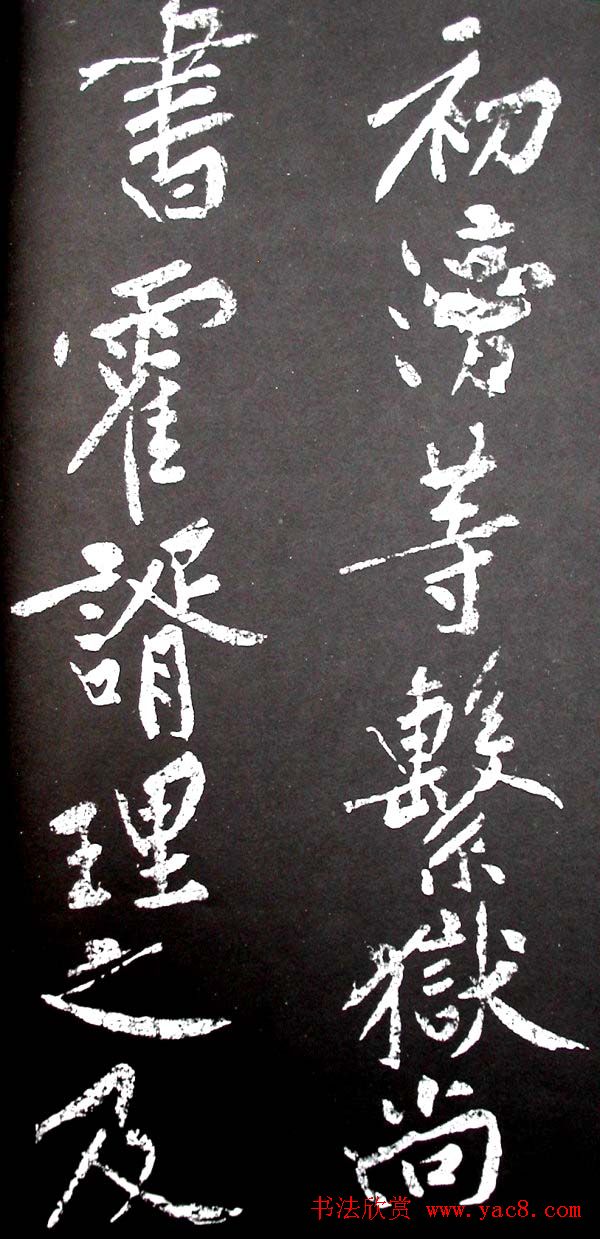 初滂等繫獄尚
書霍諝理之及
书法欣赏 www.yac8.com